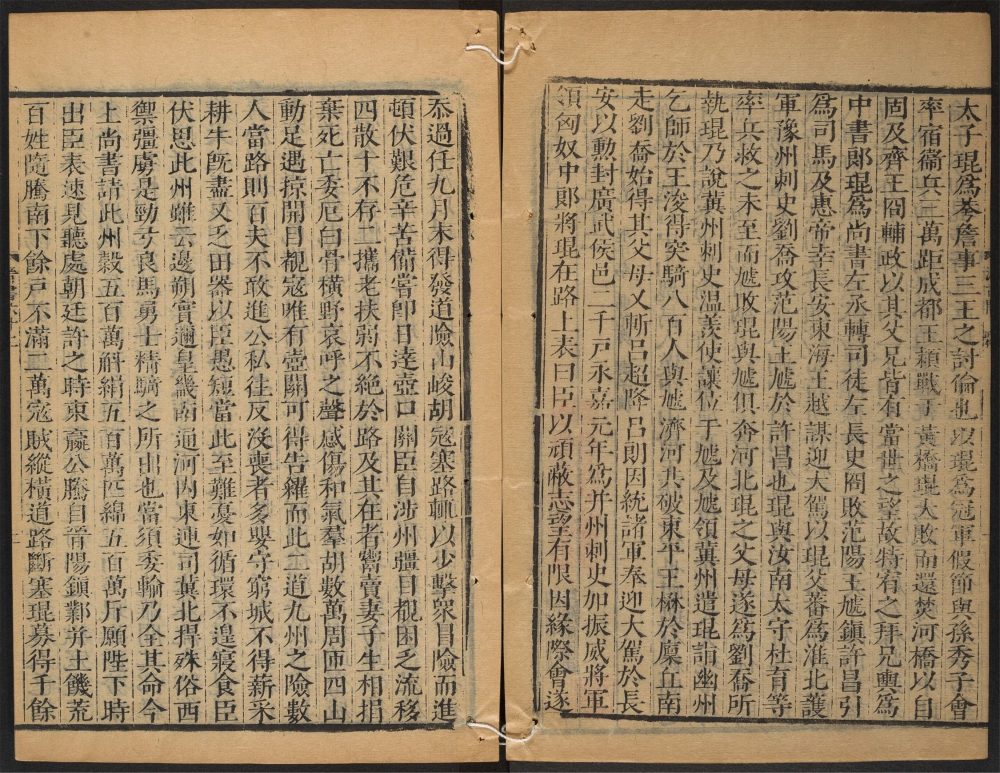 太子琨爲太子詹事三王之討倫也以琨爲冠軍假節與孫秀子會
率宿衞兵三萬距成都王穎戰于黃橋琨大敗而還焚河橋以自
固及齊王冏輔政以其父兄皆有當世之望故特宥之拜兄輿爲
中書郞琨爲尚書左丞轉司徒左長史冏敗范陽王虓鎮許昌引
爲司馬及惠帝幸長安東海王越謀迎大駕以琨父蕃爲淮北護
軍豫州刺史劉喬攻范陽王虓於許昌也琨與汝南太守杜育等
率兵救之未至而虓敗琨與虓俱奔河北琨之父母遂爲劉喬所
執琨乃說冀州刺史温羨使讓位于虓及虓領冀州遣琨詣幽州
乞師於王浚得突騎八百人與虓濟河共破東平王楙於廩丘南
走劉喬始得其父母又斬呂超降呂朗因統諸軍奉迎大駕於長
安以勳封廣武侯邑二千戸永嘉元年爲并州刺史加振威將軍
領匈奴中郞將琨在路上表曰臣以頑蔽志望有限因緣際會遂
忝過任九月末得發道險山峻胡寇塞路輒以少擊衆冒險而進
頓伏艱危辛苦備嘗卽日達壺口關臣自涉州疆目覩困乏流移
四散十不存二攜老扶弱不絶於路及其在者鬻賣妻子生相捐
棄死亡委厄白骨橫野哀呼之聲感傷和氣羣胡數萬周匝四山
動足遇掠開目覩寇唯有壺關可得告糴而此二道九州之險數
人當路則百夫不敢進公私往反沒喪者多嬰守窮城不得薪采
耕牛旣盡又乏田器以臣愚短當此至難憂如循環不遑寢食臣
伏思此州雖云邊朔實邇皇畿南通河內東連司冀北捍殊俗西
禦彊虜是勁弓良馬勇士精騎之所出也當須委輸乃全其命今
上尚書請此州穀五百萬斛絹五百萬匹綿五百萬斤願陛下時
出臣表速見聽處朝廷許之時東嬴公騰自晉陽鎮鄴并土饑荒
百姓隨騰南下餘戸不滿二萬寇賊縱橫道路斷塞琨募得千餘